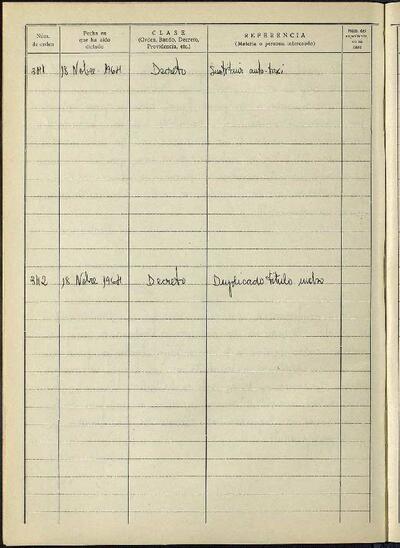 Núm. de orden
Fecha en que ha sido dictado
CLASE
(Orden, Bando, Decreto, Providencia, etc.)
REFERENCIA
(Materia o persona interesada)
Núm. del
3111 18 Nobre. 1964 Decreto Sustituir auto-taxi
3112 18 Nobre 1964 Decreto Duplicado título